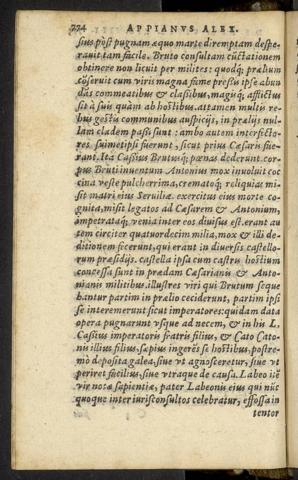 774 APPIANVS ALEX.
sius post pugnam æquo marte diremptam despe-
rauit tam facile. Bruto consultam cũctationem
obtinere non licuit per milites: quodq; præhum
cõseruit cum viris magna fame pressis ipse abun
dãs commeatibus & classibus, magisq; afflictus
sit à suis quàm ab hostibus. attamen multis re-
bus gestis communibus auspicijs, in prælijs nul-
lam cladem passi sunt: ambo autem interfecto-
res suimetipsi fuerunt, sicut prius Cæsaris fue-
rant. Ita Cassius Brutusq; pœnas dederunt. cor-
pus Bruti inuentum Antonius mox inuoluit coc
cina veste pulcherrima, crematoq; reliquias mi-
sit matri eius Seruiliæ. exercitus eius morte co-
gnita, misit legatos ad Cæsarem & Antonium,
impetrataq; venia inter eos diuisus est. erant au
tem circiter quatuordecim milia. mox & illi de-
ditionem fecerunt, qui erant in diuersis castello-
rum præsidijs. castella ipsa cum castris hostium
concessa sunt in prædam Cæsarianis & Anto-
nianis militibus. illustres viri qui Brutum seque
bantur partim in prælio ceciderunt, partim ipsi
se interemerunt sicut imperatores: quidam data
opera pugnarunt vsque ad necem, & in his L.
Cassius imperatoris fratris filius, & Cato Cato-
nis illius filius, sæpius ingerẽs se hostibus, postre-
mò deposita galea, siue vt agnosceretur, siue vt
periret facilius, siue vtraque de causa. Labeo itẽ
vir notæ sapientiæ, pater Labeonis eius qui nũc
quoque inter iurisconsultos celebratur, effossa in
tentor